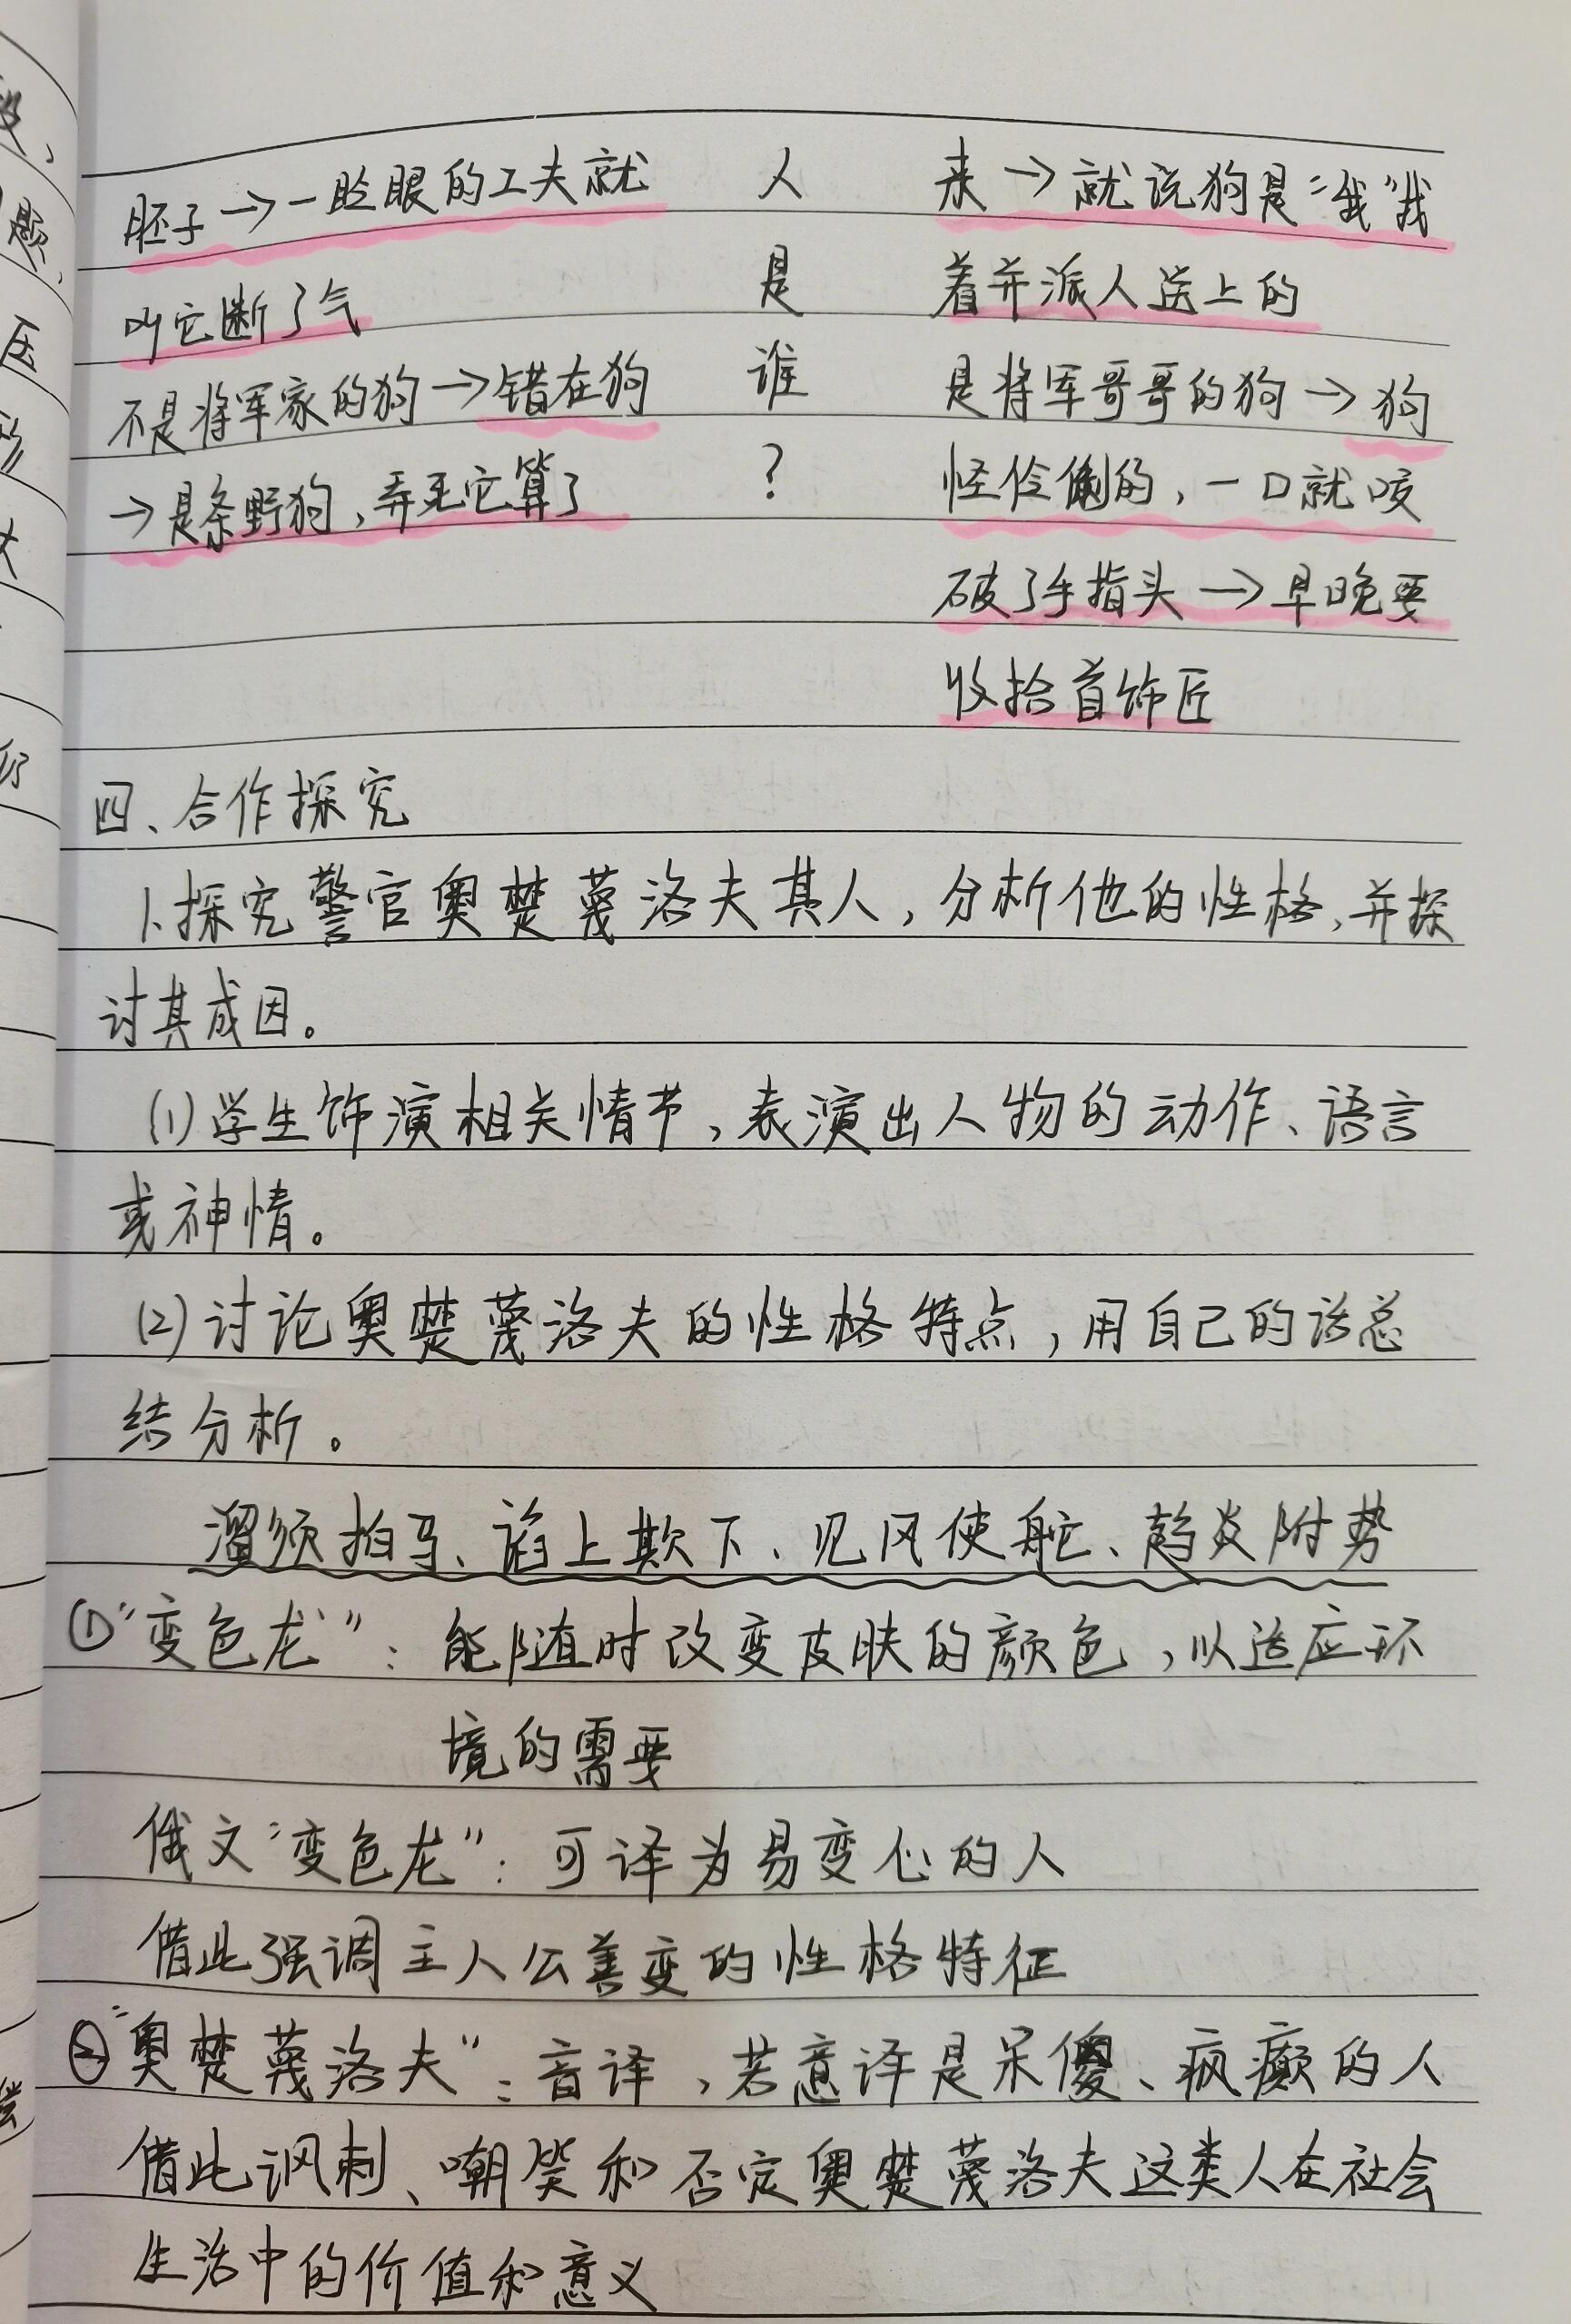 胚子→一眨眼的工夫就 人 来→就说狗是"我"找
叫它断了气 是 着并派人送上的
不是将军家的狗→错在狗 谁 是将军哥哥的狗→狗
→是条野狗，弄死它算了 ? 怪伶俐的，一口就咬
破了手指头→早晚要
收拾首饰匠
四、合作探究
1.探究警官奥楚蔑洛夫其人，分析他的性格，并探
讨其成因。
(1)学生饰演相关情节，表演出人物的动作、语言
或神情。
(2)讨论奥楚蔑洛夫的性格特点，用自己的话总
结分析。
溜须拍马、谄上欺下、见风使舵、趋炎附势
①"变色龙"：能随时改变皮肤的颜色，以适应环
境的需要
俄文"变色龙"：可译为易变心的人
借此强调主人公善变的性格特征
②"奥楚蔑洛夫"：音译，若意译是呆傻、疯癫的人
借此讽刺、嘲笑和否定奥楚蔑洛夫这类人在社会
生活中的价值和意义